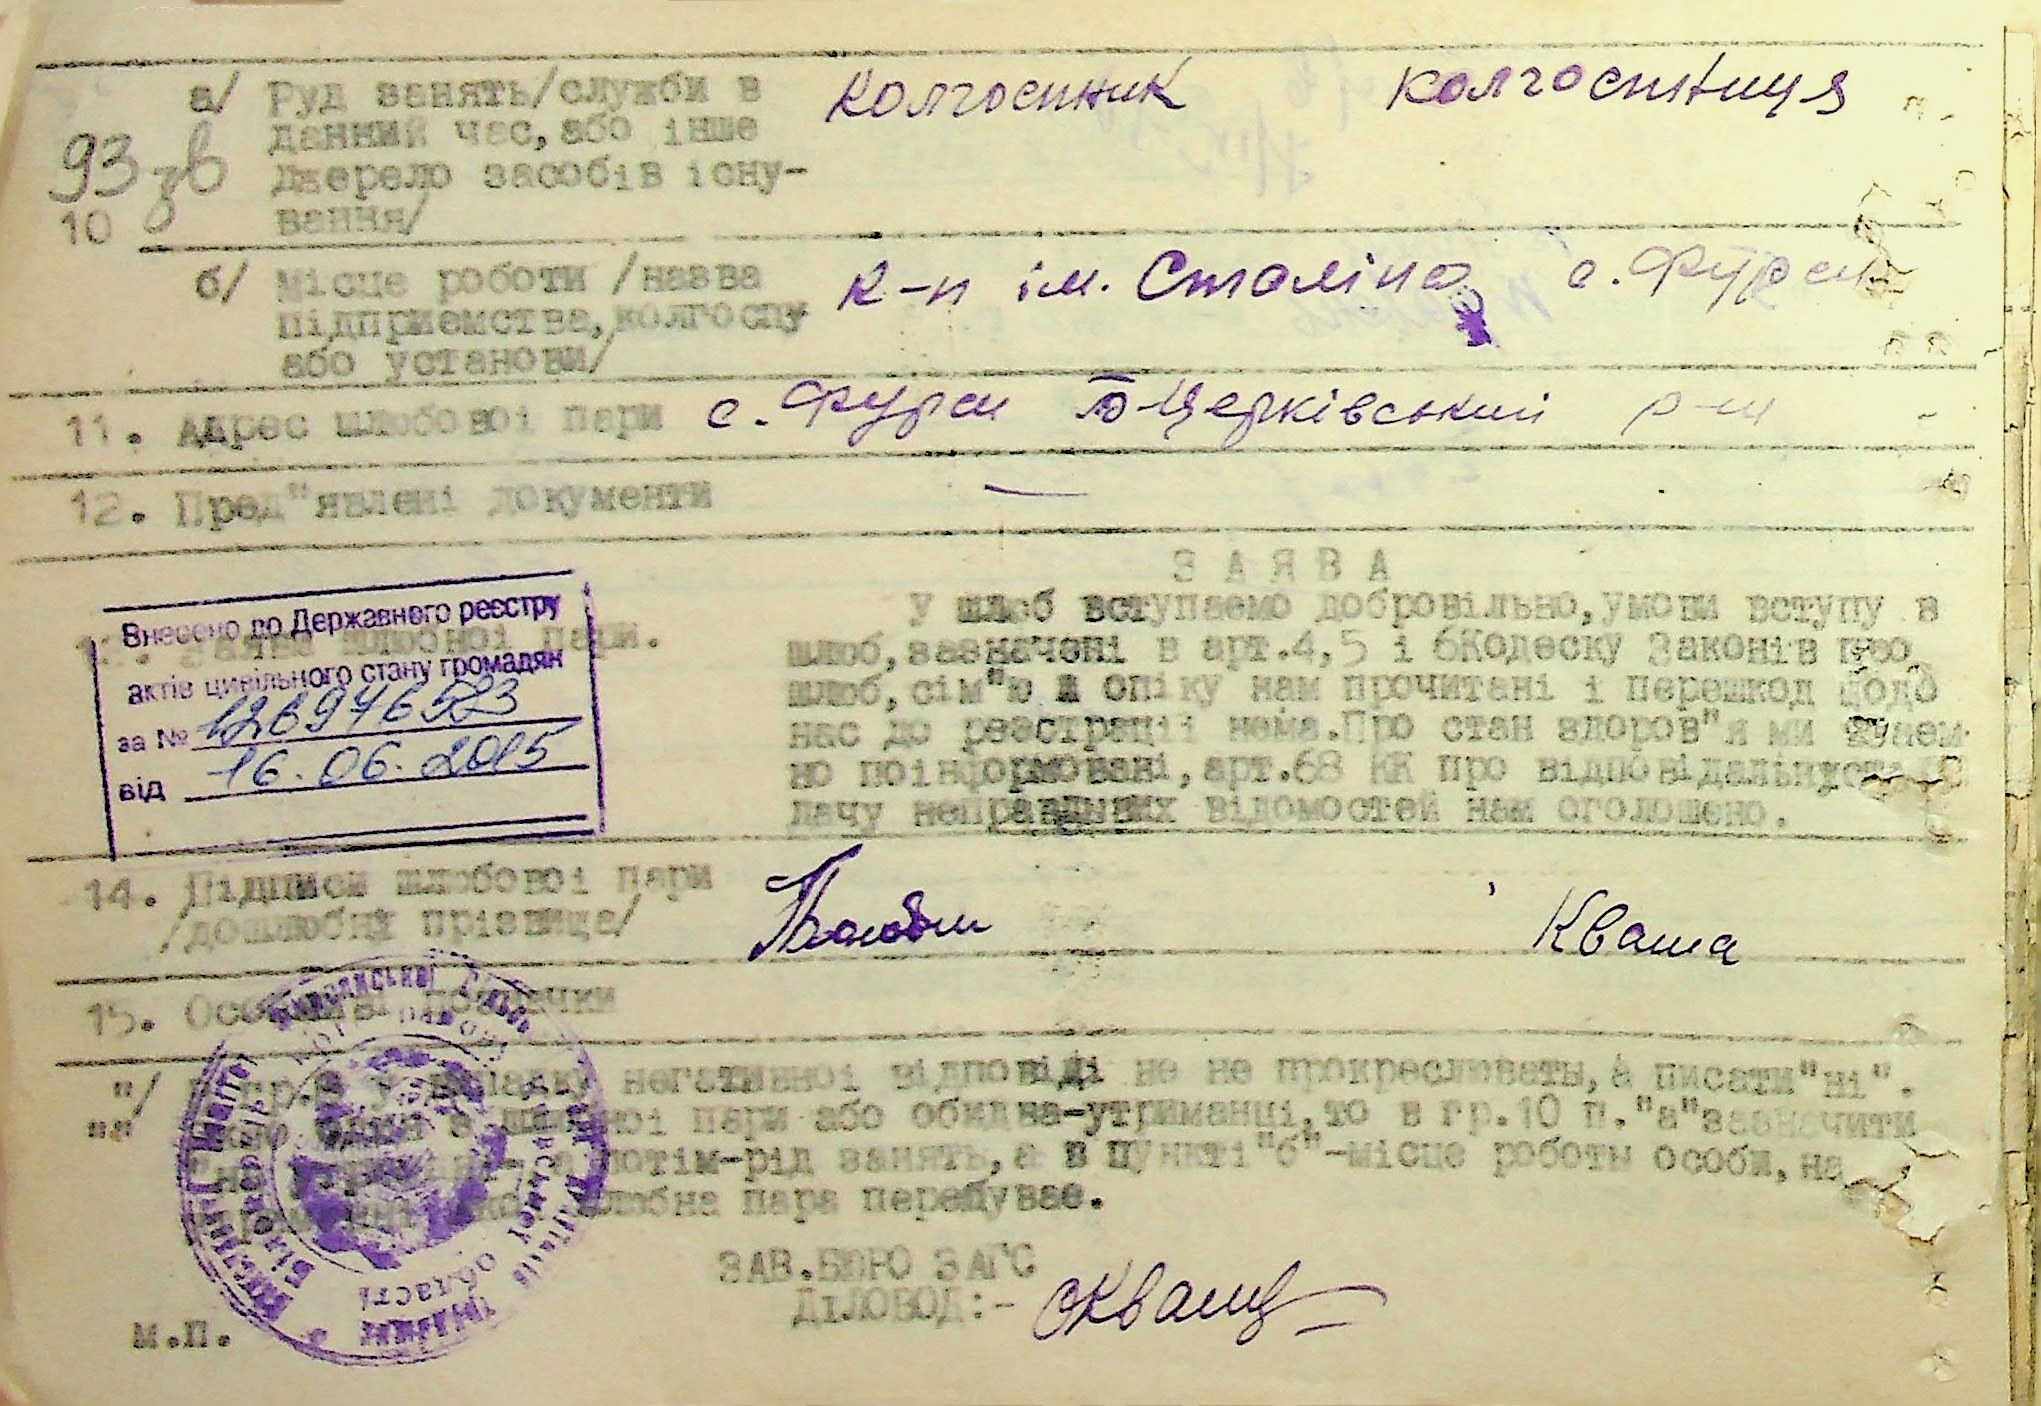 а/ Руд занять/служби в колгоспник колгоспниця
данний час, або інше
93зв джерело засобів існу-
10 вання/
б/ місце роботи /назва к-п ім. Сталіна с. Фурси
підприємства, колгоспу
або установи/
11. Адрес шлюбової пари с. Фурси Б-Церківський р-н
12. Пред"явлені документи —
ЗАЯВА
У шлюб вступаємо добровільно, умови вступу в
шлюб, зазначені в арт.4,5 і 6Кодеску Законів про
шлюб, сім"ю й опіку нам прочитані і перешкод щодо
нас до реєстрації нема. Про стан здоров"я ми взаєм-
но поінформовані, арт.68 КК про відповідальність
дачу неправдивих відомостей нам оголошено.
Внесено до Державного реєстру
актів цивільного стану громадян
за № 126976523
від 16.06.2015
Заява шлюбної пари.
14. Підписи шлюбової пари Кваша
/дошлюбні прізвище/
15. Особливі позначки
"/ гр. у випадку негативної відповіді не не прокреслювать, а писати "ні".
"" пари або обидва-утриманці, то в гр.10 п."а"зазначити
потім-рід занять, а в пункті"б"-місце роботи особи, на
шлюбна пара перебуває.
ЗАВ.БЮРО ЗАГС
ДІЛОВОД:-
м.п.
області